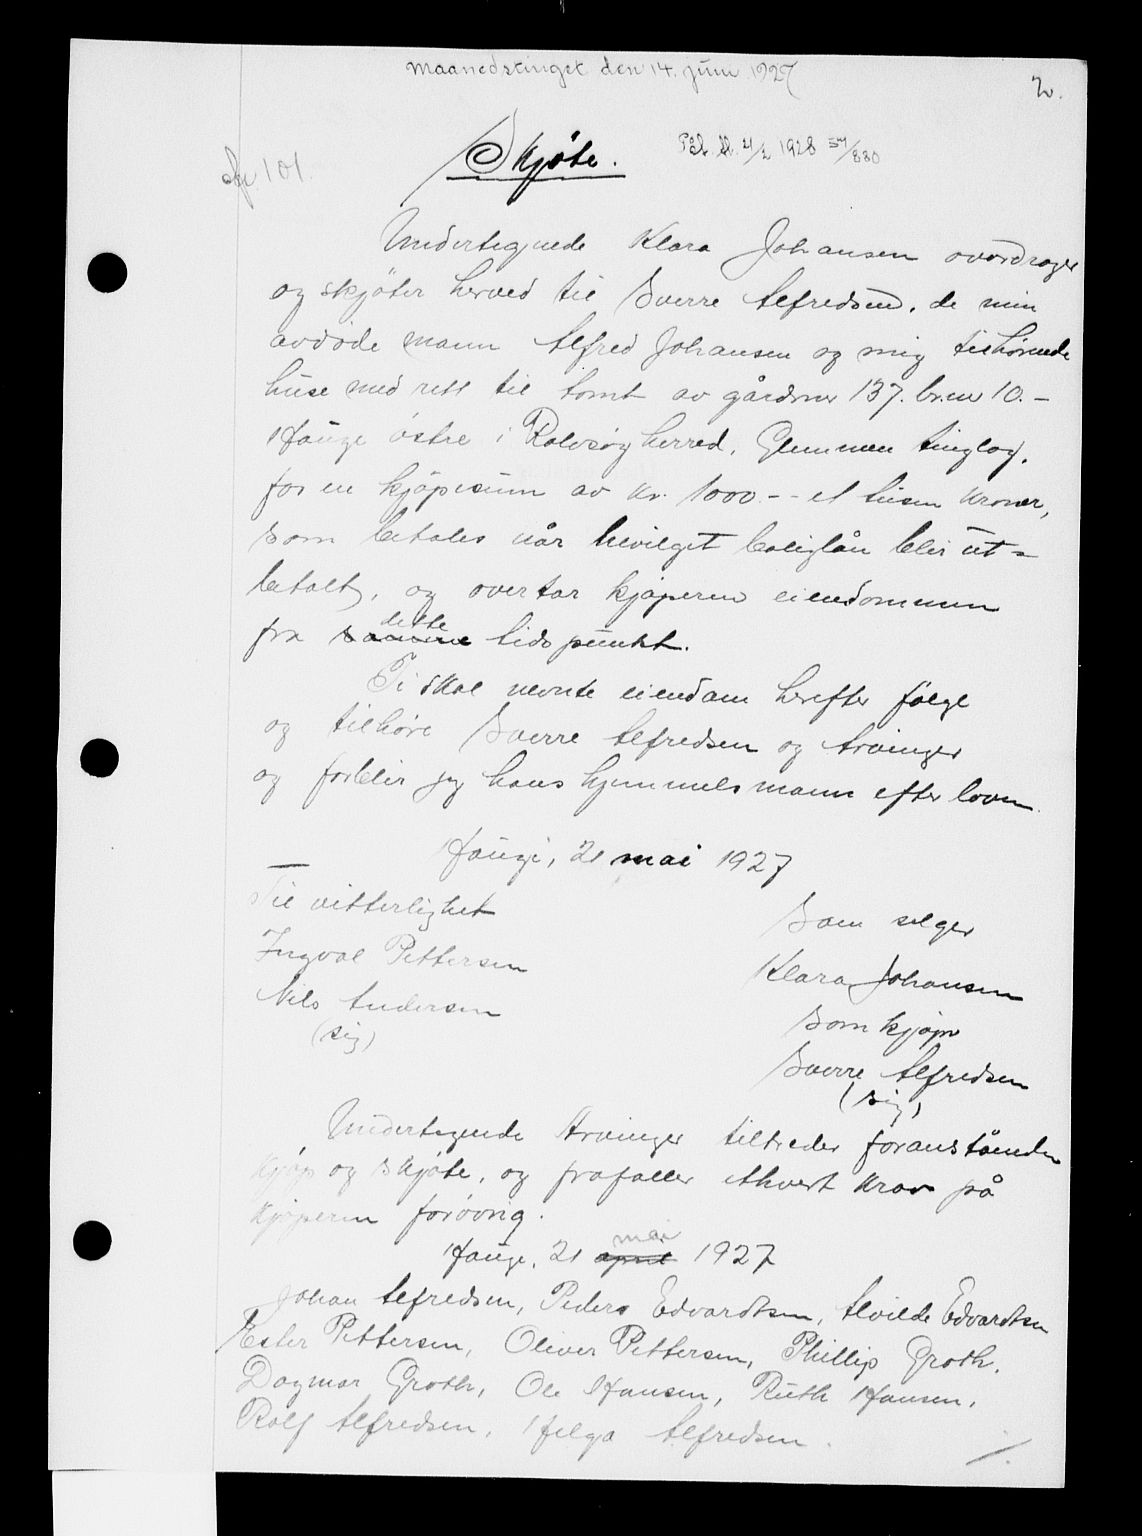 Maanedstinget den 14. juni 1927
2.
Skjøte.
1928
101.
Undertegnede Klara Johansen overdrager
og skjøter herved til Sverre Alfredsen, de min
avdøde mann Alfred Johansen og mig tilhørende
huse med rett til tomt av gårdsnr 137. br.nr 10.-
Hauge østre i Rolvsøy herred, Glemmen tinglag,
for en kjøpesum av kr. 1000.-- et tusen kroner,
som betales når bevilget boliglån blir ut-
betalt, og overtar kjøperen eiendommen
dette
fra samme tidspunkt.
Ti skal nevnte eiendom herefter følge
og tilhøre Sverre Alfredsen og Arvinger
og forblir jeg hans hjemmelsmann efter loven.
Hauge, 21 mai 1927
Til vitterlighet
Som selger
Ingval Pettersen
Klara Johansen
Nils Andersen
Som kjøper
(sig)
Sverre Alfredsen
(sig)
Undertegnede Arvinger tiltreder foranstående
kjøp og skjøte, og frafaller ethvert krav på
kjøperen forøvrig.
mai
Hauge, 21 april 1927
Johan Alfredsen, Peders Edvardsen, Alvilde Edvardsen
Ester Pettersen, Oliver Pettersen, Phillip Groth,
Dagmar Groth, Ole Hansen, Ruth Hansen,
Rolf Alfredsen, Helga Alfredsen.